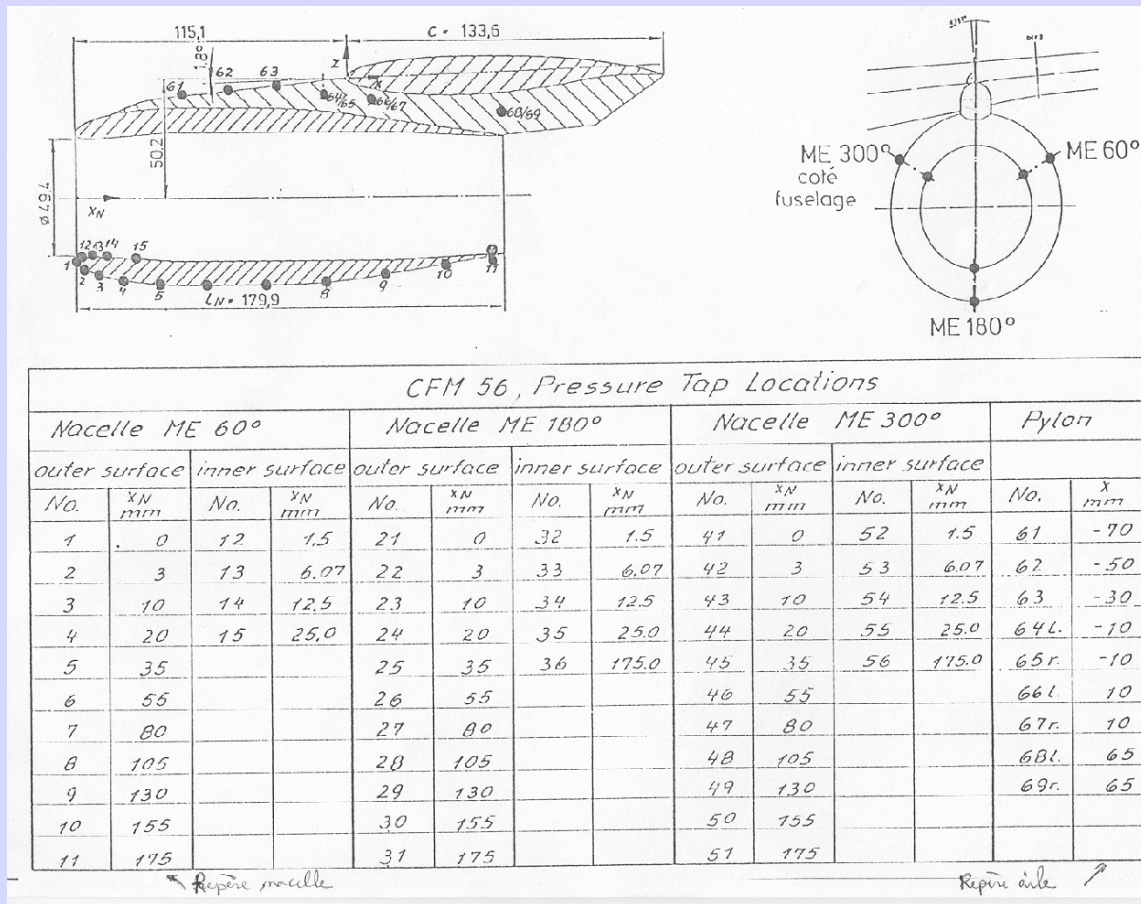 115,1
C = 133,6
1,8°
z
x
61
62
63
64/65
66/67
68/69
50,2
ø 49,4
XN
12 13 14
15
1
2
3
4
5
8
9
10
11
LN = 179,9
ME 300°
coté
fuselage
ME 60°
ME 180°
CFM 56, Pressure Tap Locations
Nacelle ME 60° Nacelle ME 180° Nacelle ME 300° Pylon
outer surface inner surface outer surface inner surface outer surface inner surface
No. xN mm No. xN mm No. xN mm No. xN mm No. xN mm No. xN mm No. x mm
1 0 12 1,5 21 0 32 1.5 41 0 52 1.5 61 -70
2 3 13 6,07 22 3 33 6,07 42 3 53 6,07 62 -50
3 10 14 12,5 23 10 34 12,5 43 10 54 12.5 63 -30
4 20 15 25,0 24 20 35 25.0 44 20 55 25.0 64 l. -10
5 35 25 35 36 175.0 45 35 56 175.0 65 r. -10
6 55 26 55 46 55 66 l. 10
7 80 27 80 47 80 67 r. 10
8 105 28 105 48 105 68 l. 65
9 130 29 130 49 130 69 r. 65
10 155 30 155 50 155
11 175 31 175 51 175
Repère nacelle
Repère aile